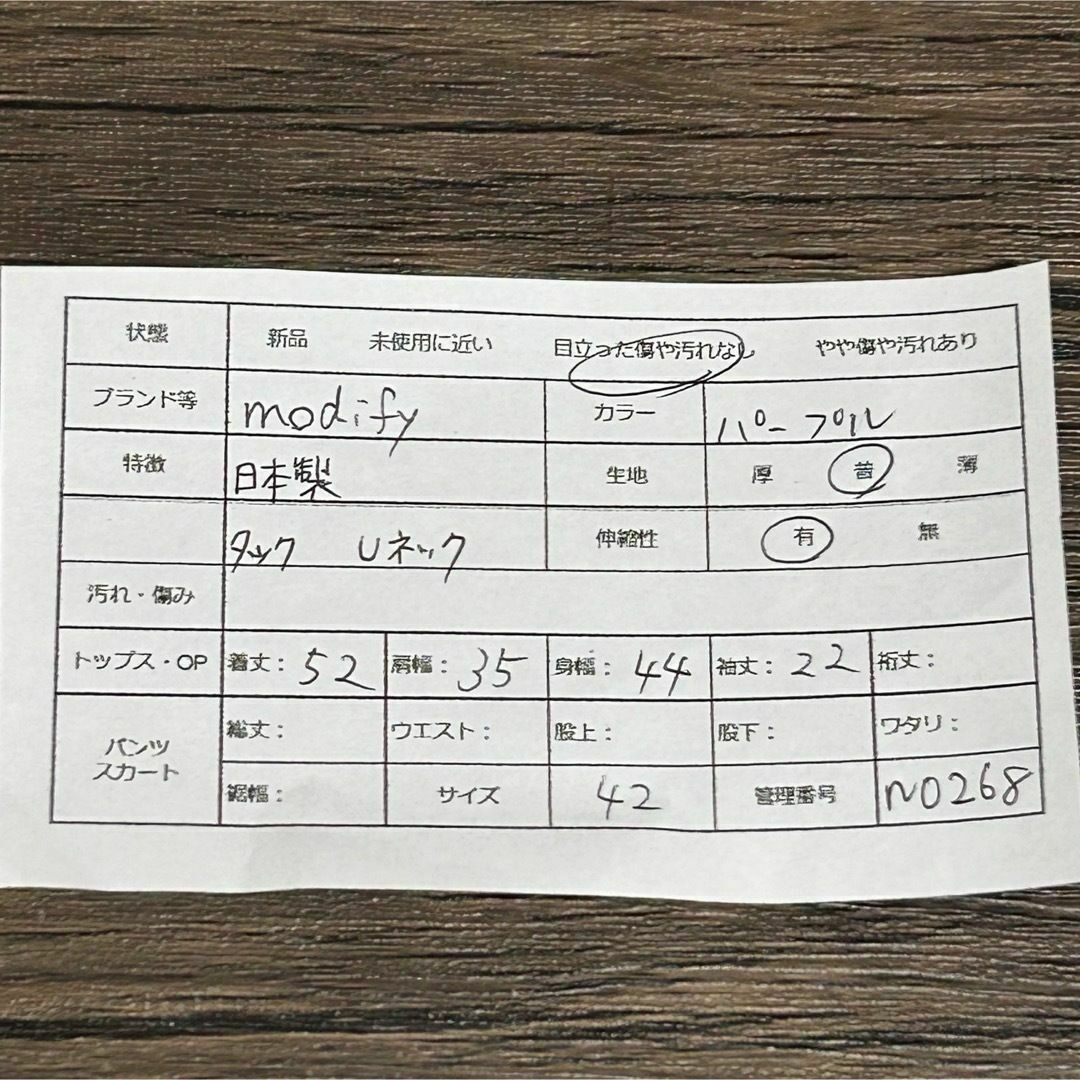 状態 新品 未使用に近い 目立った傷や汚れなし やや傷や汚れあり
ブランド等 modify カラー パープル
特徴 日本製 生地 厚 普 薄
タック Uネック 伸縮性 有 無
汚れ・傷み
トップス・OP 着丈: 52 肩幅: 35 身幅: 44 袖丈: 22 裄丈:
パンツ スカート 総丈: ウエスト: 股上: 股下: ワタリ:
裾幅: サイズ 42 管理番号 NO268